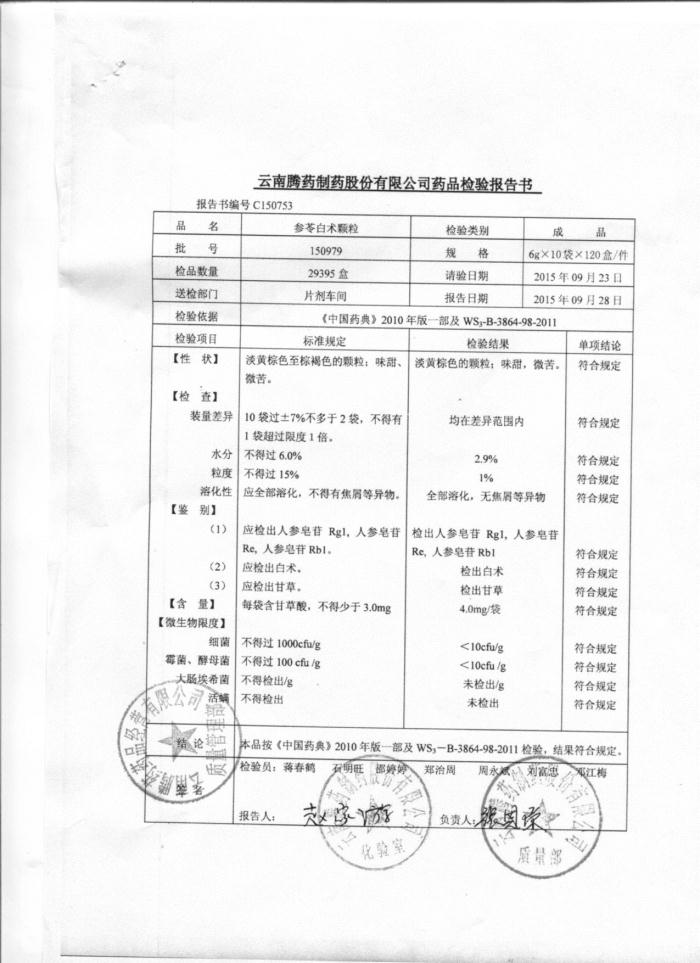 云南腾药制药股份有限公司药品检验报告书
报告书编号 C150753
品 名 参苓白术颗粒 检验类别 成 品
批 号 150979 规 格 6g×10袋×120盒/件
检品数量 29395 盒 请验日期 2015 年 09 月 23 日
送检部门 片剂车间 报告日期 2015 年 09 月 28 日
检验依据 《中国药典》2010 年版一部及 WS₃-B-3864-98-2011
检验项目 标准规定 检验结果 单项结论
【性 状】 淡黄棕色至棕褐色的颗粒；味甜、 淡黄棕色的颗粒；味甜，微苦。 符合规定
微苦。
【检 查】
装量差异 10 袋过±7%不多于 2 袋，不得有 均在差异范围内 符合规定
1 袋超过限度 1 倍。
水分 不得过 6.0% 2.9% 符合规定
粒度 不得过 15% 1% 符合规定
溶化性 应全部溶化，不得有焦屑等异物。 全部溶化，无焦屑等异物 符合规定
【鉴 别】
（1） 应检出人参皂苷 Rg1, 人参皂苷 检出人参皂苷 Rg1, 人参皂苷
Re, 人参皂苷 Rb1。 Re, 人参皂苷 Rb1 符合规定
（2） 应检出白术。 检出白术 符合规定
（3） 应检出甘草。 检出甘草 符合规定
【含 量】 每袋含甘草酸，不得少于 3.0mg 4.0mg/袋 符合规定
【微生物限度】
细菌 不得过 1000cfu/g ＜10cfu/g 符合规定
霉菌、酵母菌 不得过 100 cfu /g ＜10cfu /g 符合规定
大肠埃希菌 不得检出/g 未检出/g 符合规定
活螨 不得检出 未检出 符合规定
结 论 本品按《中国药典》2010 年版一部及 WS₃－B-3864-98-2011 检验，结果符合规定。
检验员：蒋春鹤 石明旺 邵婷婷 郑治周 周永斌 刘富忠 邓江梅
报告人： 负责人：
药品经营有限公司
质量管理部
制药股份有限公司
化验室
质量部